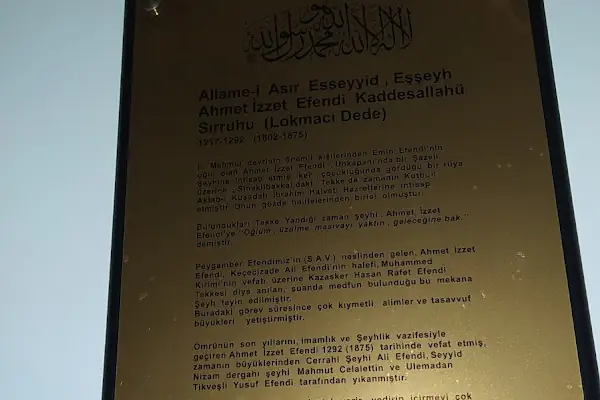 لا اله الا الله محمد رسول الله
Allame-i Asır Esseyyid , Eşşeyh
Ahmet İzzet Efendi Kaddesallahü
Sırruhu (Lokmacı Dede)
1217-1292 (1802-1875)
II. Mahmut devrinin önemli kişilerinden Emin Efendi'nin
oğlu olan Ahmet İzzet Efendi , Unkapanı'nda bir Şazeli
Şeyhine intisap etmiş iken çocukluğunda gördüğü bir rüya
üzerine , Sineklibakkal'daki Tekke'de zamanın Kutbu'l
Aktab-ı Kuşadalı İbrahim Halveti Hazretlerine intisap
etmiştir. Onun gözde halifelerinden birisi olmuştur.
Bulundukları Tekke Yandığı zaman şeyhi , Ahmet İzzet
Efendi'ye "Oğlum, üzülme masivayı yaktın, geleceğine bak."
demiştir.
Peygamber Efendimiz'in (S.A.V) neslinden gelen, Ahmet İzzet
Efendi, Keçecizade Ali Efendi'nin halefi, Muhammed
Kırimi'nin vefatı üzerine Kazasker Hasan Rafet Efendi
Tekkesi diye anılan, şuanda medfun bulunduğu bu mekana
Şeyh tayin edilmiştir.
Buradaki görev süresince çok kıymetli alimler ve tasavvuf
büyükleri yetiştirmiştir.
Ömrünün son yıllarını, imamlık ve Şeyhlik vazifesiyle
geçiren Ahmet İzzet Efendi 1292 (1875) tarihinde vefat etmiş,
zamanın büyüklerinden Cerrahi Şeyhi Ali Efendi, Seyyid
Nizam dergahı şeyhi Mahmut Celalettin ve Ulemadan
Tikveşli Yusuf Efendi tarafından yıkanmıştır.
yedirip içirmeyi çok